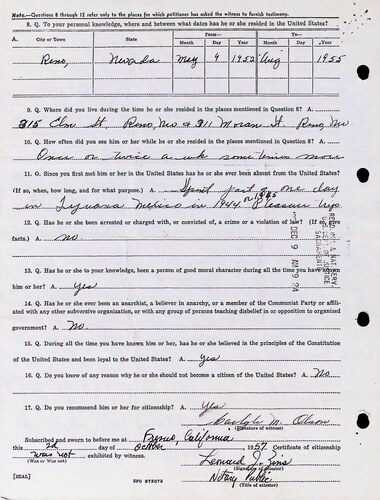 Note.—Questions 8 through 12 refer only to the places for which petitioner has asked the witness to furnish testimony.
8. Q. To your personal knowledge, where and between what dates has he or she resided in the United States?
A. City or Town State From— To—
Month Day Year Month Day Year
Reno, Nevada May 9 1952 Aug 1955
9. Q. Where did you live during the time he or she resided in the places mentioned in Question 8? A.
315 Elm St, Reno, Nev & 311 Moran St. Reno, Nev.
10. Q. How often did you see him or her while he or she resided in the places mentioned in Question 8? A.
Once or twice a wk sometimes more
11. Q. Since you first met him or her in the United States has he or she ever been absent from the United States?
(If so, when, how long, and for what purpose.) A. Spent part of one day
in Tijuana Mexico in 1944 or 1945 Pleasure trip
12. Q. Has he or she been arrested or charged with, or convicted of, a crime or a violation of law? (If so, give
facts.) A. no
13. Q. Has he or she to your knowledge, been a person of good moral character during all the time you have known
him or her? A. Yes
14. Q. Has he or she ever been an anarchist, a believer in anarchy, or a member of the Communist Party or affiliated
with any other subversive organization, or with any group of persons teaching disbelief in or opposition to organized
government? A. No.
15. Q. During all the time you have known him or her, has he or she believed in the principles of the Constitution
of the United States and been loyal to the United States? A. Yes
16. Q. Do you know of any reason why he or she should not become a citizen of the United States? A. No
17. Q. Do you recommend him or her for citizenship? A. Yes
Carlyle M. Olson
(Signature of witness)
Subscribed and sworn to before me at Fresno, California
this 2d day of October 1957. Certificate of citizenship
was not exhibited by witness.
(Was or Was not)
Leonard J. Zins
(Signature of attestor)
Notary Public
(Title of attestor)
[SEAL]
GPO 973073
REC'D IMM & NAT. SERV.
U.S. DEPT. OF JUSTICE
SACRAMENTO
DEC 9 AM 9 24